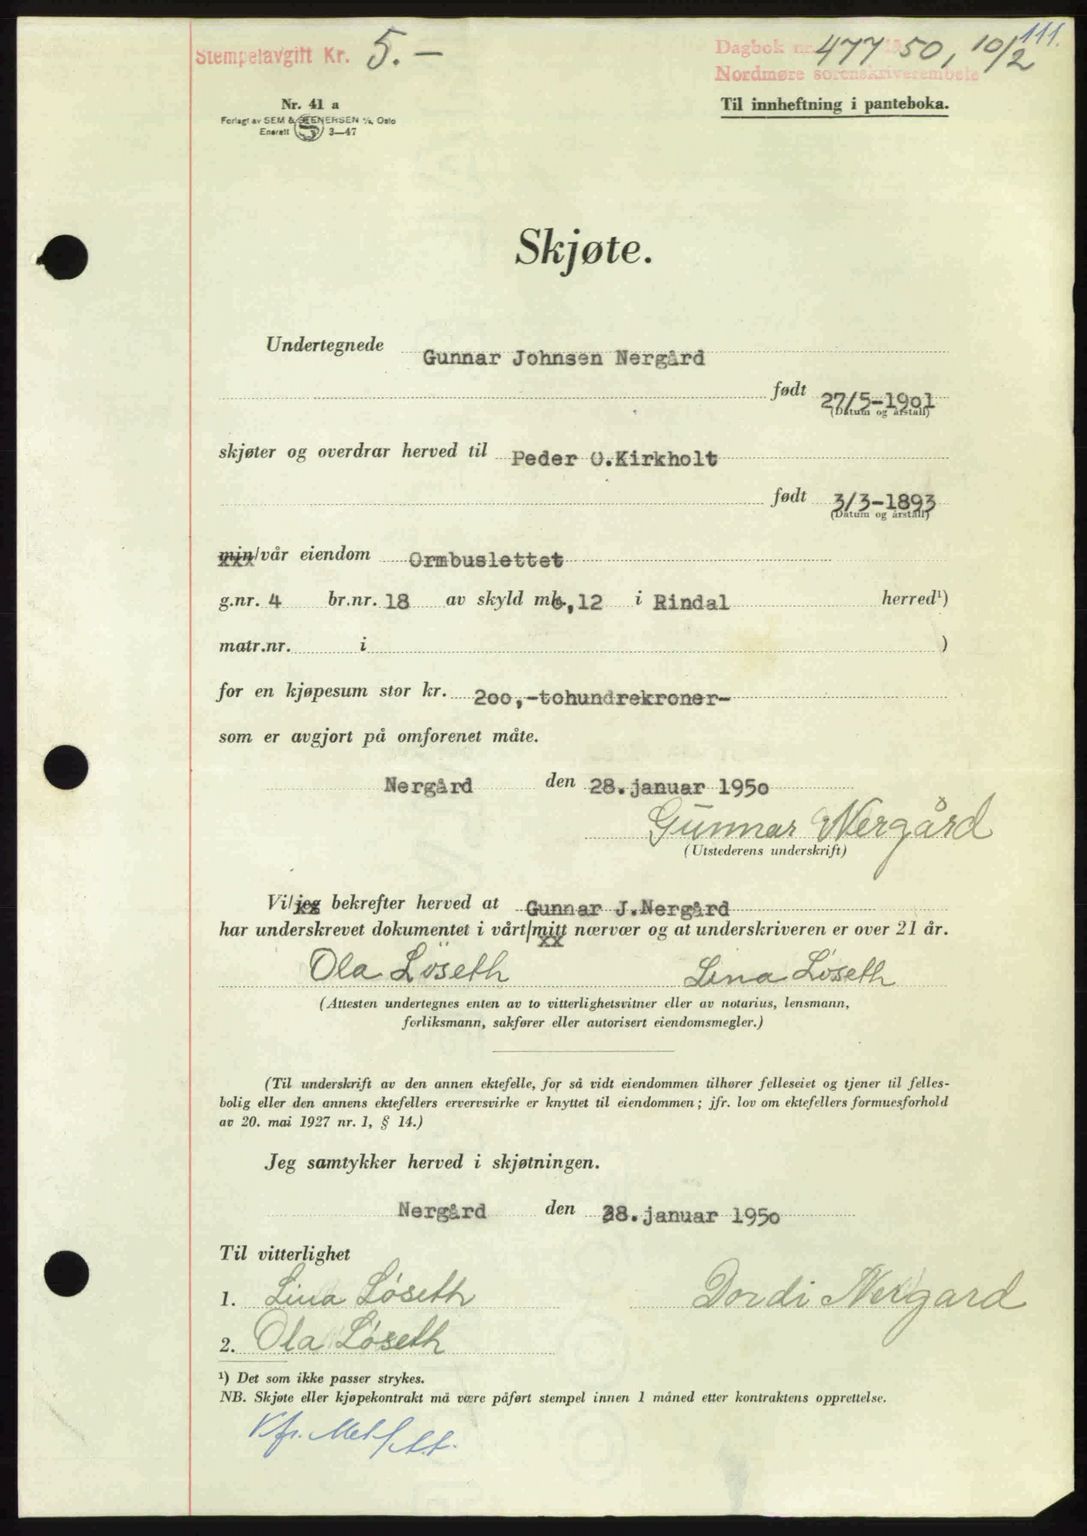 111.
Stempelavgift Kr. 5.-
Dagbok nr. 477 50, 10/2
Nordmøre sorenskriverembete
Nr. 41 a
Til innheftning i panteboka.
Forlagt av SEM & STENERSEN A/S, Oslo
Enerett S 3—47
Skjøte.
Undertegnede Gunnar Johnsen Nergård
født 27/5-1901
(Datum og årstall)
skjøter og overdrar herved til Peder O.Kirkholt
født 3/3-1893
(Datum og årstall)
min/vår eiendom Ormbuslettet
g.nr. 4 br.nr. 18 av skyld mk. 0,12 i Rindal herred¹)
matr.nr. i )
for en kjøpesum stor kr. 200,-tohundrekroner-
som er avgjort på omforenet måte.
Nergård den 28.januar 1950
Gunnar Nergård
(Utstederens underskrift)
Vi/jeg bekrefter herved at Gunnar J.Nergård
har underskrevet dokumentet i vårt/mitt nærvær og at underskriveren er over 21 år.
Ola Löseth Lina Löseth
(Attesten undertegnes enten av to vitterlighetsvitner eller av notarius, lensmann,
forliksmann, sakfører eller autorisert eiendomsmegler.)
(Til underskrift av den annen ektefelle, for så vidt eiendommen tilhører felleseiet og tjener til felles-
bolig eller den annens ektefellers ervervsvirke er knyttet til eiendommen; jfr. lov om ektefellers formuesforhold
av 20. mai 1927 nr. 1, § 14.)
Jeg samtykker herved i skjøtningen.
Nergård den 28.januar 1950
Til vitterlighet
1. Lina Löseth Dordi Nergard
2. Ola Löseth
¹) Det som ikke passer strykes.
NB. Skjøte eller kjøpekontrakt må være påført stempel innen 1 måned etter kontraktens opprettelse.